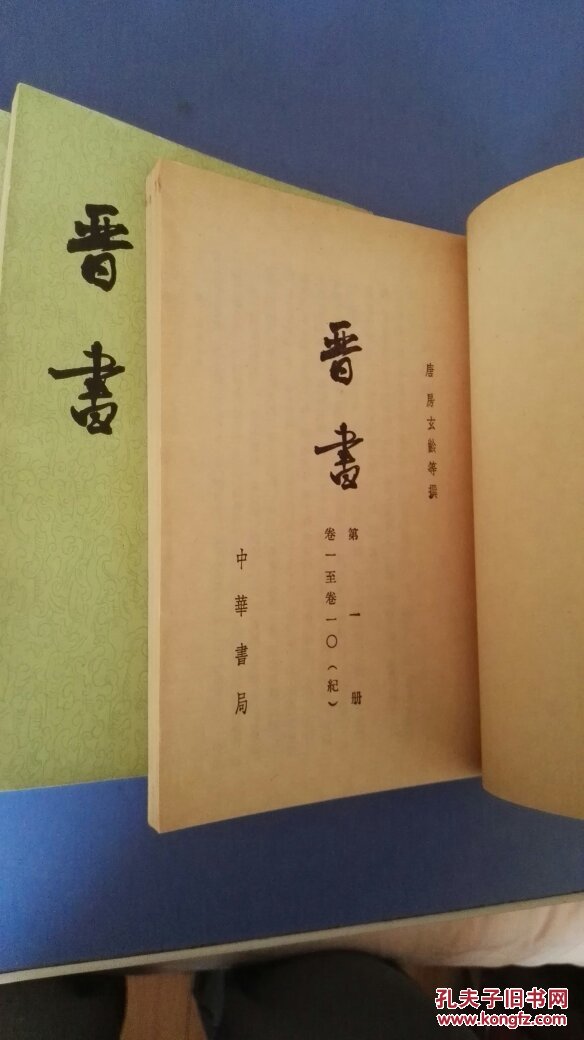 晋書
唐 房玄齡等撰
晋書
第一册
卷一至卷一〇（紀）
中華書局
孔夫子旧书网
www.kongfz.com